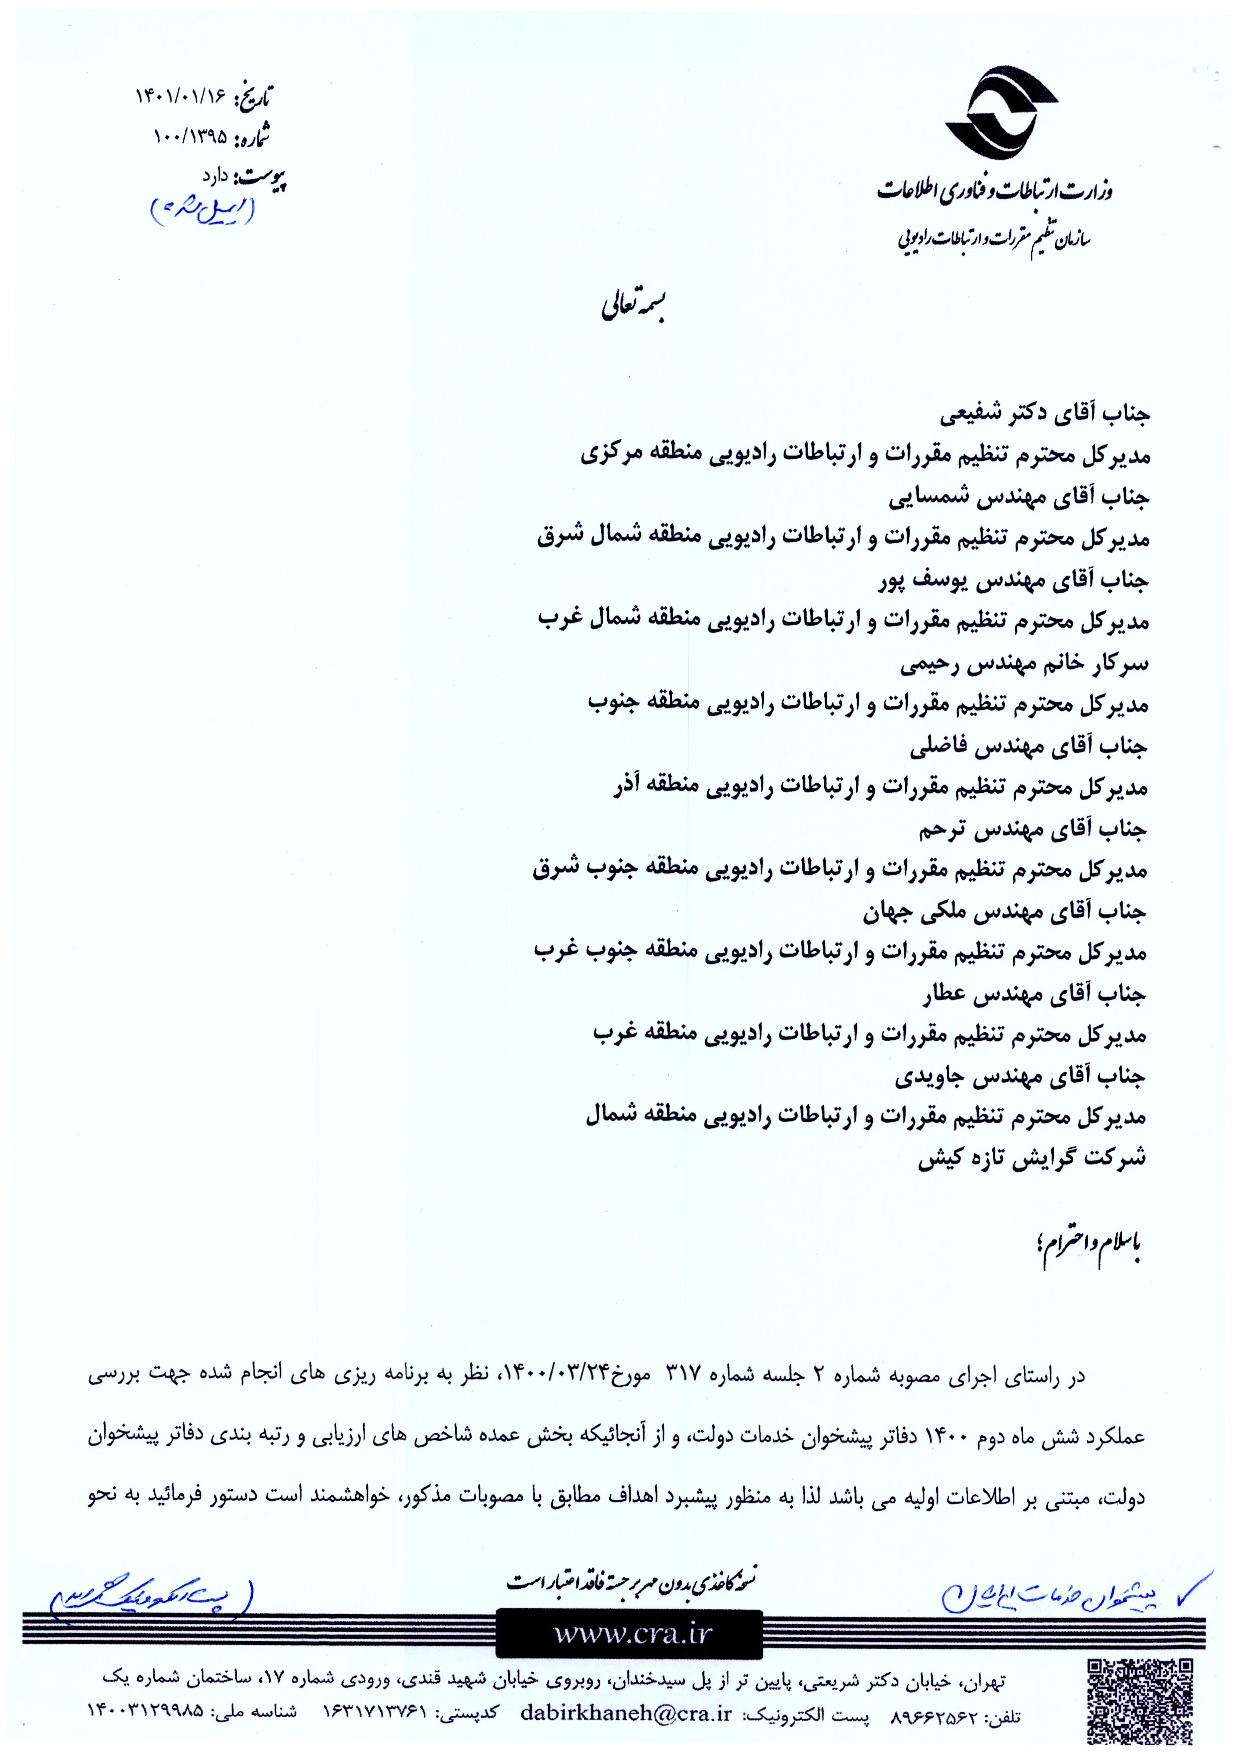 تاریخ: ۱۴۰۱/۰۱/۱۶
شماره: ۱۰۰/۱۳۹۵
پیوست: دارد
(ایمیل شده)
وزارت ارتباطات و فناوری اطلاعات
سازمان تنظیم مقررات و ارتباطات رادیویی
بسمه تعالی
جناب آقای دکتر شفیعی
مدیرکل محترم تنظیم مقررات و ارتباطات رادیویی منطقه مرکزی
جناب آقای مهندس شمسایی
مدیرکل محترم تنظیم مقررات و ارتباطات رادیویی منطقه شمال شرق
جناب آقای مهندس یوسف پور
مدیرکل محترم تنظیم مقررات و ارتباطات رادیویی منطقه شمال غرب
سرکار خانم مهندس رحیمی
مدیرکل محترم تنظیم مقررات و ارتباطات رادیویی منطقه جنوب
جناب آقای مهندس فاضلی
مدیرکل محترم تنظیم مقررات و ارتباطات رادیویی منطقه آذر
جناب آقای مهندس ترحم
مدیرکل محترم تنظیم مقررات و ارتباطات رادیویی منطقه جنوب شرق
جناب آقای مهندس ملکی جهان
مدیرکل محترم تنظیم مقررات و ارتباطات رادیویی منطقه جنوب غرب
جناب آقای مهندس عطار
مدیرکل محترم تنظیم مقررات و ارتباطات رادیویی منطقه غرب
جناب آقای مهندس جاویدی
مدیرکل محترم تنظیم مقررات و ارتباطات رادیویی منطقه شمال
شرکت گرایش تازه کیش
باسلام و احترام؛
در راستای اجرای مصوبه شماره ۲ جلسه شماره ۳۱۷ مورخ۱۴۰۰/۰۳/۲۴، نظر به برنامه ریزی های انجام شده جهت بررسی
عملکرد شش ماه دوم ۱۴۰۰ دفاتر پیشخوان خدمات دولت، و از آنجائیکه بخش عمده شاخص های ارزیابی و رتبه بندی دفاتر پیشخوان
دولت، مبتنی بر اطلاعات اولیه می باشد لذا به منظور پیشبرد اهداف مطابق با مصوبات مذکور، خواهشمند است دستور فرمائید به نحو
نسخه کاغذی بدون مهر برجسته فاقد اعتبار است
پیشخوان خدمات ایرانیان
www.cra.ir
تهران، خیابان دکتر شریعتی، پایین تر از پل سیدخندان، روبروی خیابان شهید قندی، ورودی شماره ۱۷، ساختمان شماره یک
تلفن: ۸۹۶۶۲۵۶۲ پست الکترونیک: dabirkhaneh@cra.ir کدپستی: ۱۶۳۱۷۱۳۷۶۱ شناسه ملی: ۱۴۰۰۳۱۲۹۹۸۵